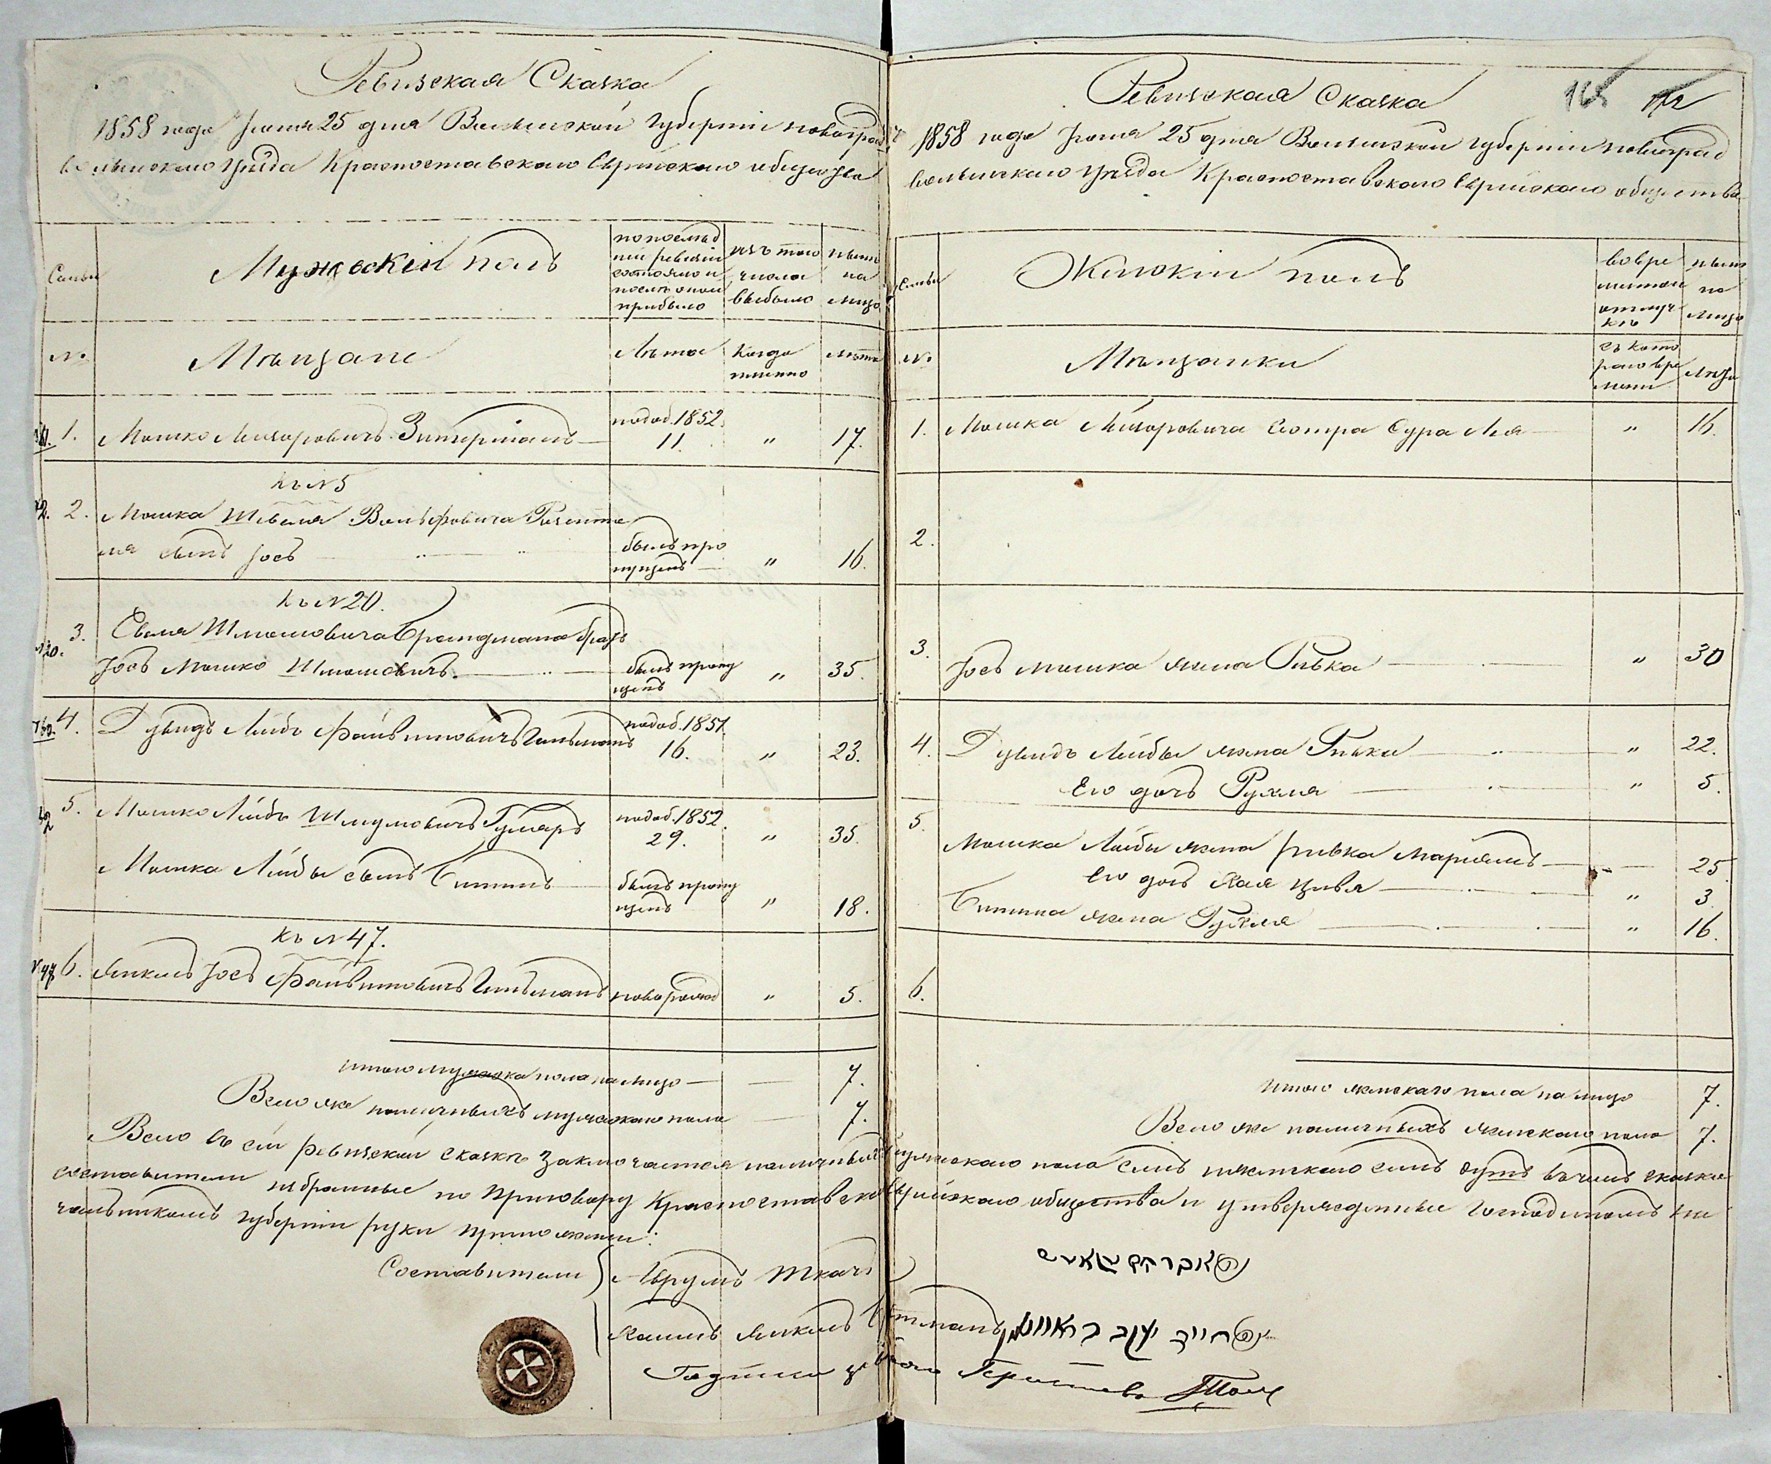 Ревизская Сказка
1858 года Іюня 25 дня Волынской Губерніи Новоград
волынского уѣзда Красноставского Еврейского общества
Семьи
Мужескій полъ
по послѣд
ней ревизіи
состояло и
послѣ оной
прибыло
изъ того
числа
выбыло
нынѣ
на
лицо
№
Мѣщане
Лѣта
Когда
именно
Лѣта
1. Мошко Лейзоровичъ
подоб. 1852.
11. " 17.
къ №5
2. Мошка Шевеля Вольфовича
сынъ Іось
былъ про
пущенъ " 16.
къ №20.
№20. 3. Шмоиловича братъ
Іось Мошко Шмоиловичъ
былъ пропу
щенъ " 35.
4. Дувидъ Лейбъ Файвишовичъ Гительманъ
подоб. 1851.
16. " 23.
5. Мошко Лейбъ Шмулиовичъ
подоб. 1852.
29. " 35.
Мошка Лейбы сынъ
былъ пропу
щенъ " 18.
къ №47.
№47. 6. Янкель Іось Файвишовичъ Гительманъ
новорожд " 5.
Итого мужеска пола на лицо 7.
Всего же наличныхъ мужескаго пола 7.
Ревизская Сказка
1858 года Іюня 25 дня Волынской Губерніи Новоград
волынского уѣзда Красноставского Еврейского общества
Семьи
Женскій полъ
во вре
менной
отлуч-
кѣ
нынѣ
на
лицо
№
Мѣщанки
съ кото
раго вре
мени
Лѣта
1. Мошка Лейзоровича сестра Сура Лея " 16.
2.
3. Іось Мошка жена Ривка " 30
4. Дувидъ Лейбы жена " 22.
Его дочь Рухля " 5.
5. Мошка Лейбы жена Ривка Маріямъ 25.
Его дочь Хая Цивя " 3.
жена Рухля " 16.
6.
Итого женскаго пола на лицо 7.
Всего же наличныхъ женскаго пола 7.
Всего въ сей ревизской сказкѣ заключается наличныхъ мужескаго пола семь и женскаго семь душъ въ чемъ сказко
составители избранные по приговору Красноставского Еврейскаго общества и утвержденные Господиномъ На
чальникомъ Губерніи руки приложили:
Составители Аврумъ Ткачъ
Хаимъ Янкель
חיים יעקב